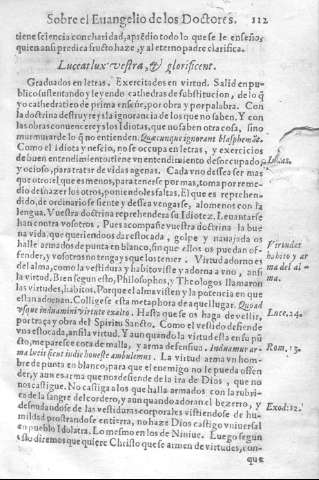 Sobre el Euangelio de los Doctores. 112
tiene sciencia con charidad, aprẽdio todo lo que se le enseña,
quien ansi predica fructo haze, y al eterno padre clarifica.
Luceat lux vestra, & glorificent.
Graduados en letras. Exercitados en virtud. Salid en pu-
blico sustentando y leyendo cathedras de substitucion, de lo q̃
yo cathedratico de prima enseñe, por obra y por palabra. Con
la doctrina destruyreys la ignorancia de los que no saben. Y con
las obras conuencereys los Idiotas, que no saben otra cosa, sino
murmurar de lo q̃ no entienden. Quæcunque ignorant blasphemãt.
Como el idiota y nescio, no se occupa en letras, y exercicios
de buen entendimiento tiene vn entendimiento desocupado,
y ocioso, para tratar de vidas agenas. Cada vno dessea ser mas
que otro: el que es menos, para tenerse por mas, toma por reme-
dio deshazer los otros, poniendoles faltas. El que es reprehen-
dido, de ordinario se siente y dessea vengarse, alomenos con la
lengua. Vuestra doctrina reprehendera su Idiotez. Leuantarse
han contra vosotros. Pues acompañe vuestra doctrina la bue
na vida, que queriendoos dar estocada, golpe y nauajada os
halle armados de punta en blanco, sin que ellos os puedan of-
fender, y vosotros no tengays que los temer. Virtud adorno es
del alma, como la vestidura y habito viste y adorna a vno, ansi
la virtud. Bien segun esto, Philosophos, y Theologos llamaron
las virtudes, habitos. Porque el alma visten y la potencia en que
estan adornan. Colligese esta metaphora de aquel lugar. Quad
vsque induamini virtute ex alto. Hasta que se os haga de vellir,
por traça y obra del Spiritu Sancto. Como el vestido defiende
vna estocada, ansi la virtud. Y aunque la virtud esta en su pũ
sto, me parece cota de malla, y arma defensiua. Induamur ar-
ma lucis sicut in die honeste ambulemus. La virtud arma vn hom-
bre de punta en blanco, para que el enemigo no le pueda offen
der, y aun es arma que nos defiende de la ira de Dios, que no
nos castigue. No castiga a los que halla armados con la rubri-
ca de la sangre del cordero, y aun quando adoran el bezerro, y
desnudandose de las vestiduras corporales vistiendose de hu-
mildad prostrandose en tierra, no haze Dios castigo vniuersal
en pueblo Idolatra. Lo mesmo en los de Niniue. Luego segun
esto diremos que quiere Christo que se armen de virtudes, con-
que
Virtudes
habito y ar
ma del al-
ma.
Luce. 24.
Rom. 13.
Exod. 12.